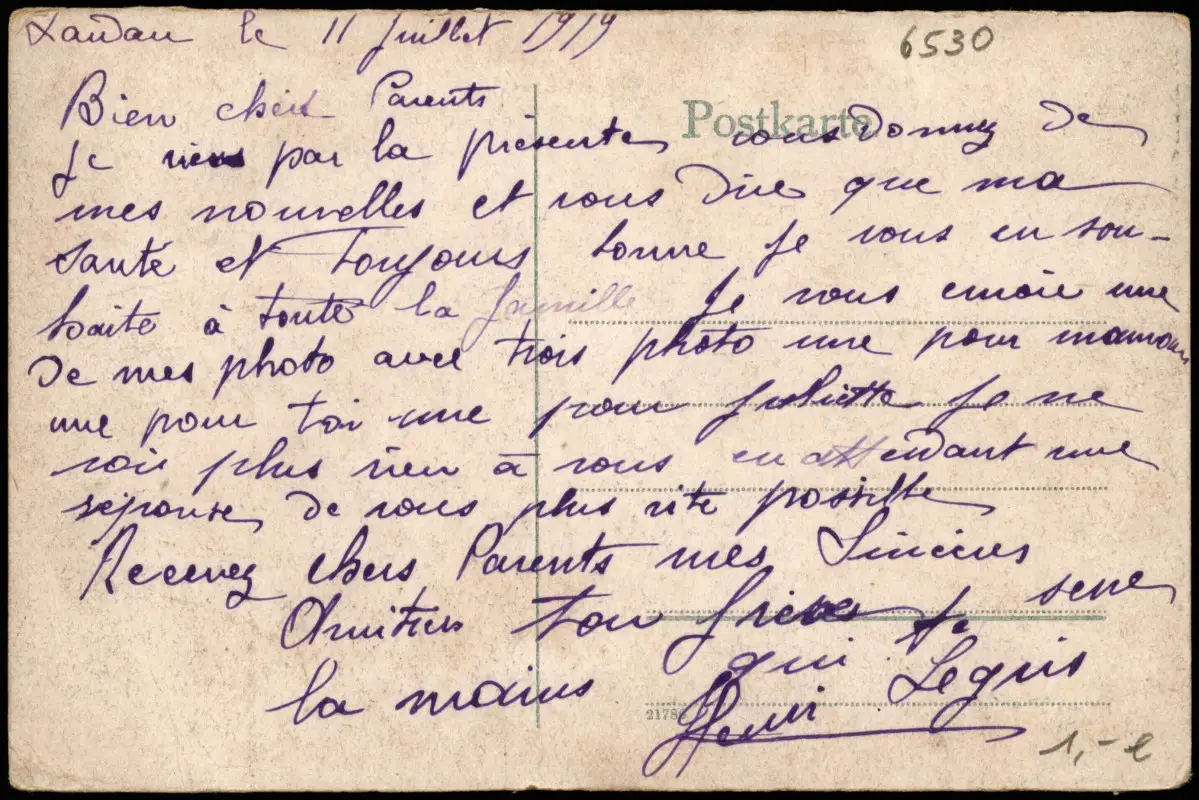 Landau le 11 Juillet 1919
6530
Postkarte
Bien chers Parents
Je viens par la présente vous donnez de
mes nouvelles et vous dire que ma
santé et toujours bonne Je vous en sou-
haite à toute la famille Je vous envoie une
de mes photo avec trois photo une pour maman
une pour toi une pour Juliette Je ne
voie plus rien à vous en attendant une
réponse de vous plus vite possible
Recevez chers Parents mes Sincères
Amitiés ton frère qui te serre
la mains Henri Leguis
2178
1,-e